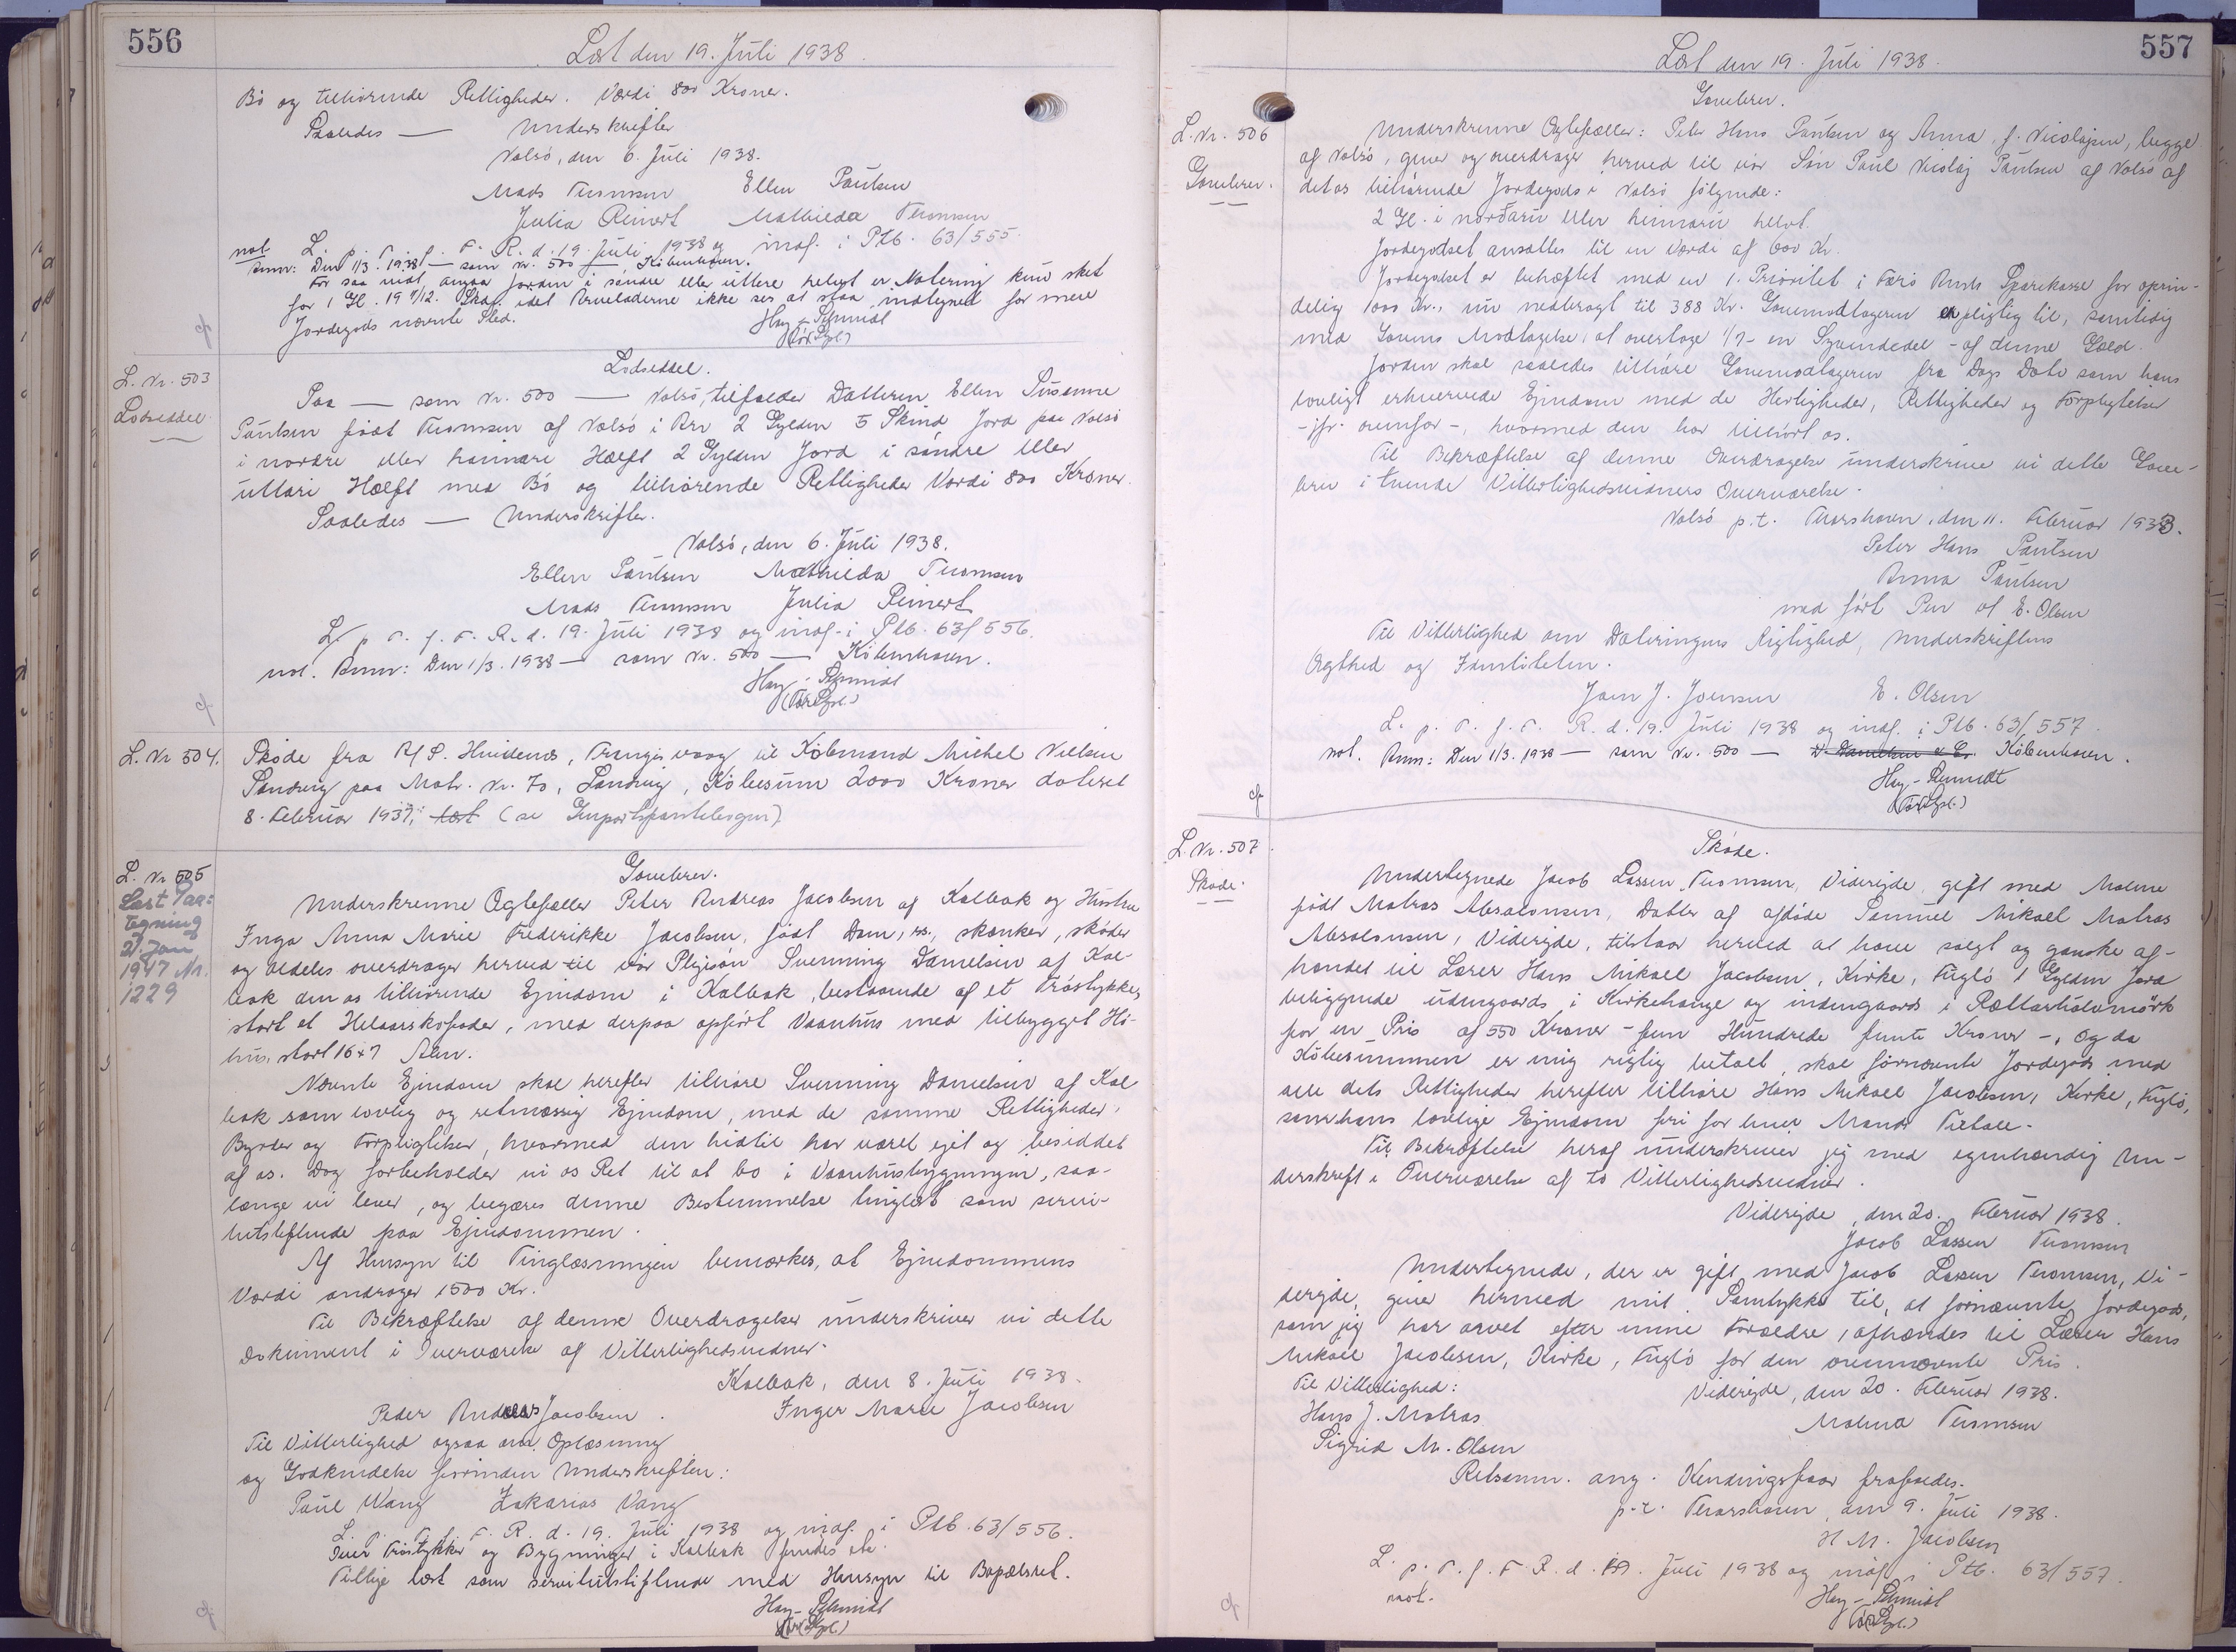 556
Læst den 19. Juli 1938.
Bö og tilhörende Rettigheder. Værdi 800 Kroner.
Saaledes — Underskrifter
Nolsö, den 6. Juli 1938.
Mads Thomsen Ellen Poulsen
Julia Reinert Mathilda Thomsen
not. L. p. T. f. F. R. d. 19. Juli 1938 og indf. i Ptb. 63/555.
Anm: Den 1/3. 1938 — som Nr. 500 — København.
For saa vidt angaar Jorden i söndre eller uttere helvt er Notering kun sket
for 1 Gl. 19 7/12. Skd. idet Arveladerne ikke ses at staa indtegnet for mere
Jordegods nævnte Sted.
Hey-Schmidt
(Tör Spl.)
L. Nr. 503
Lodseddel
Lodseddel.
Paa — som Nr. 500 — Nolsö, tilfalder Datteren Ellen Susanne
Poulsen födt Thomsen af Nolsö i Arv 2 Gylden 5 Skind Jord paa Nolsö
i nordre eller hannare Hælft 2 Gylden Jord i söndre eller
uttari Hælft med Bö og tilhörende Rettigheder Værdi 800 Kroner.
Saaledes — Underskrifter.
Nolsö, den 6. Juli 1938.
Ellen Poulsen Mathilda Thomsen
Mads Thomsen Julia Reinert
L. p. T. f. F. R. d. 19. Juli 1938 og indf. i Ptb. 63/556.
not. Anm: Den 1/3. 1938 — som Nr. 500 — København.
Hey-Schmidt
(Tör Spl.)
L. Nr 504.
Sköde fra A/S. Hvidenæs, Trangisvaag til Köbmand Michel Nielsen
Sandvig paa Matr. Nr. 70, Sandvig, Köbesum 2000 Kroner dateret
8. Februar 1937; læst (se Ginportspantebogen)
L. Nr 505
Læst Paa:
tegning
21 Jan
1947 Nr.
1229
Gavebrev.
Underskrevne Ægtefæller Peter Andreas Jacobsen af Kalbak og Hustru
Inga Anna Marie Frederikke Jacobsen, födt Dam, ss., skænker, sköder
og aldeles overdrager herved til vor Plejesön Svenning Danielsen af Kal-
bak den os tilhörende Ejendom i Kalbak, bestaaende af et Tröstykke,
stort et Helaarskofoder, med derpaa opfört Vaanhus med tilbygget Hö-
hus, stort 16x7 Alen.
Nævnte Ejendom skal herefter tilhöre Svenning Danielsen af Kal
bak som lovlig og retmæssig Ejendom, med de samme Rettigheder,
Byrder og Forpligtelser, hvormed den hidtil har været ejet og besiddet
af os. Dog forbeholder vi os Ret til at bo i Vaanhusbygningen, saa-
længe vi lever, og begæres denne Bestemmelse tinglæst som servi-
tutstiftende paa Ejendommen.
Af Hensyn til Tinglæsningen bemærkes, at Ejendommens
Værdi andrager 1500 Kr.
Til Bekræftelse af denne Overdragelse underskriver vi dette
Dokument i Overværelse af Vitterlighedsvidner.
Kalbak, den 8. Juli 1938.
Peder Andreas Jacobsen. Inger Marie Jacobsen
Til Vitterlighed ogsaa om Oplæsning
og Godkendelse forinden Underskriften:
Poul Wang Zakarias Vang
L. p. T. f. F. R. d. 19. Juli 1938 og indf. i Ptb. 63/556.
Over Tröstykker og Bygninger i Kalbak findes ell.
Tillige læst som servitutstiftende med Hensyn til Bopælsret.
Hey-Schmidt
(Tör Spl.)
557
Læst den 19. Juli 1938.
L. Nr. 506
Gavebrev.
Gavebrev.
Underskrevne Ægtefæller: Peter Hans Poulsen og Anna, f. Nicolajsen, begge
af Nolsö, giver og overdrager herved til vor Sön Poul Nicolaj Poulsen af Nolsö af
det os tilhörende Jordegods i Nolsö fölgende:
2 Gl. i norðaru eller heimaru helvt.
Jordegodset ansættes til en Værdi af 600 Kr.
Jordegodset er behæftet med en 1. Prioritet i Færö Amts Sparekasse for oprin-
delig 1000 Kr., nu nedbragt til 388 Kr. Gavemodtageren er pligtig til, samtidig
med Gavens Modtagelse, at overtage 1/7 - en Syvendedel - af denne Gæld.
Jorden skal saaledes tilhöre Gavemodtageren fra Dags Dato som hans
lovligt erhvervede Ejendom med de Herligheder, Rettigheder og Forpligtelser
- jfr. ovenfor -, hvormed den har tilhört os.
Til Bekræftelse af denne Overdragelse underskrive vi dette Gave-
brev i tvende Vitterlighedsvidners Overværelse.
Nolsö p.t. Thorshavn, den 11. Februar 1938.
Peter Hans Poulsen
Anna Poulsen
med fört Pen af E. Olsen
Til Vitterlighed om Dateringens Rigtighed, Underskriftens
Ægthed og Identiteten.
Joen J. Joensen E. Olsen
L. p. T. f. F. R. d. 19. Juli 1938 og indf. i Ptb. 63/557.
not. Anm: Den 1/3. 1938 — som Nr. 500 — D. Danielsen & Co. København.
Hey-Schmidt
(Tör Spl.)
L. Nr. 507
Sköde.
Sköde.
Undertegnede Jacob Lassen Thomsen, Videreide, gift med Malene
födt Matras Absalonsen, Datter af afdöde Samuel Mikael Matras
Absalonsen, Videreide, tilstaar herved at have solgt og ganske af-
hændet til Lærer Hans Mikael Jacobsen, Kirke, Fuglö 1 Gylden Jord
beliggende udengaards i Kirkehauge og indengaards i Rættarhúsmørk
for en Pris af 550 Kroner - fem Hundrede femti Kroner -, Og da
Köbesummen er mig rigtig betalt, skal fornævnte Jordegods med
alle dets Rettigheder herefter tilhöre Hans Mikael Jacobsen, Kirke, Fuglö,
som hans lovlige Ejendom fri for hver Mands Tiltale.
Til Bekræftelse heraf underskriver jeg med egenhændig Un-
derskrift i Overværelse af to Vitterlighedsvidner.
Videreide, den 20. Februar 1938.
Jacob Lassen Thomsen
Undertegnede, der er gift med Jacob Lassen Thomsen, Vi-
dereide, giver hermed mit Samtykke til, at fornævnte Jordegods,
som jeg har arvet efter mine Forældre, afhændes til Lærer Hans
Mikael Jacobsen, Kirke, Fuglö for den ovennævnte Pris.
Til Vitterlighed: Videreide, den 20. Februar 1938.
Hans J. Matras Malena Thomsen
Sigrid M. Olsen
Retsanm. ang. Kendingsfaar frafaldes.
p.t. Thorshavn, den 9. Juli 1938.
H M. Jacobsen
L. p. T. f. F. R. d. 19. Juli 1938 og indf. i Ptb. 63/557.
not.
Hey-Schmidt
(Tör Spl.)